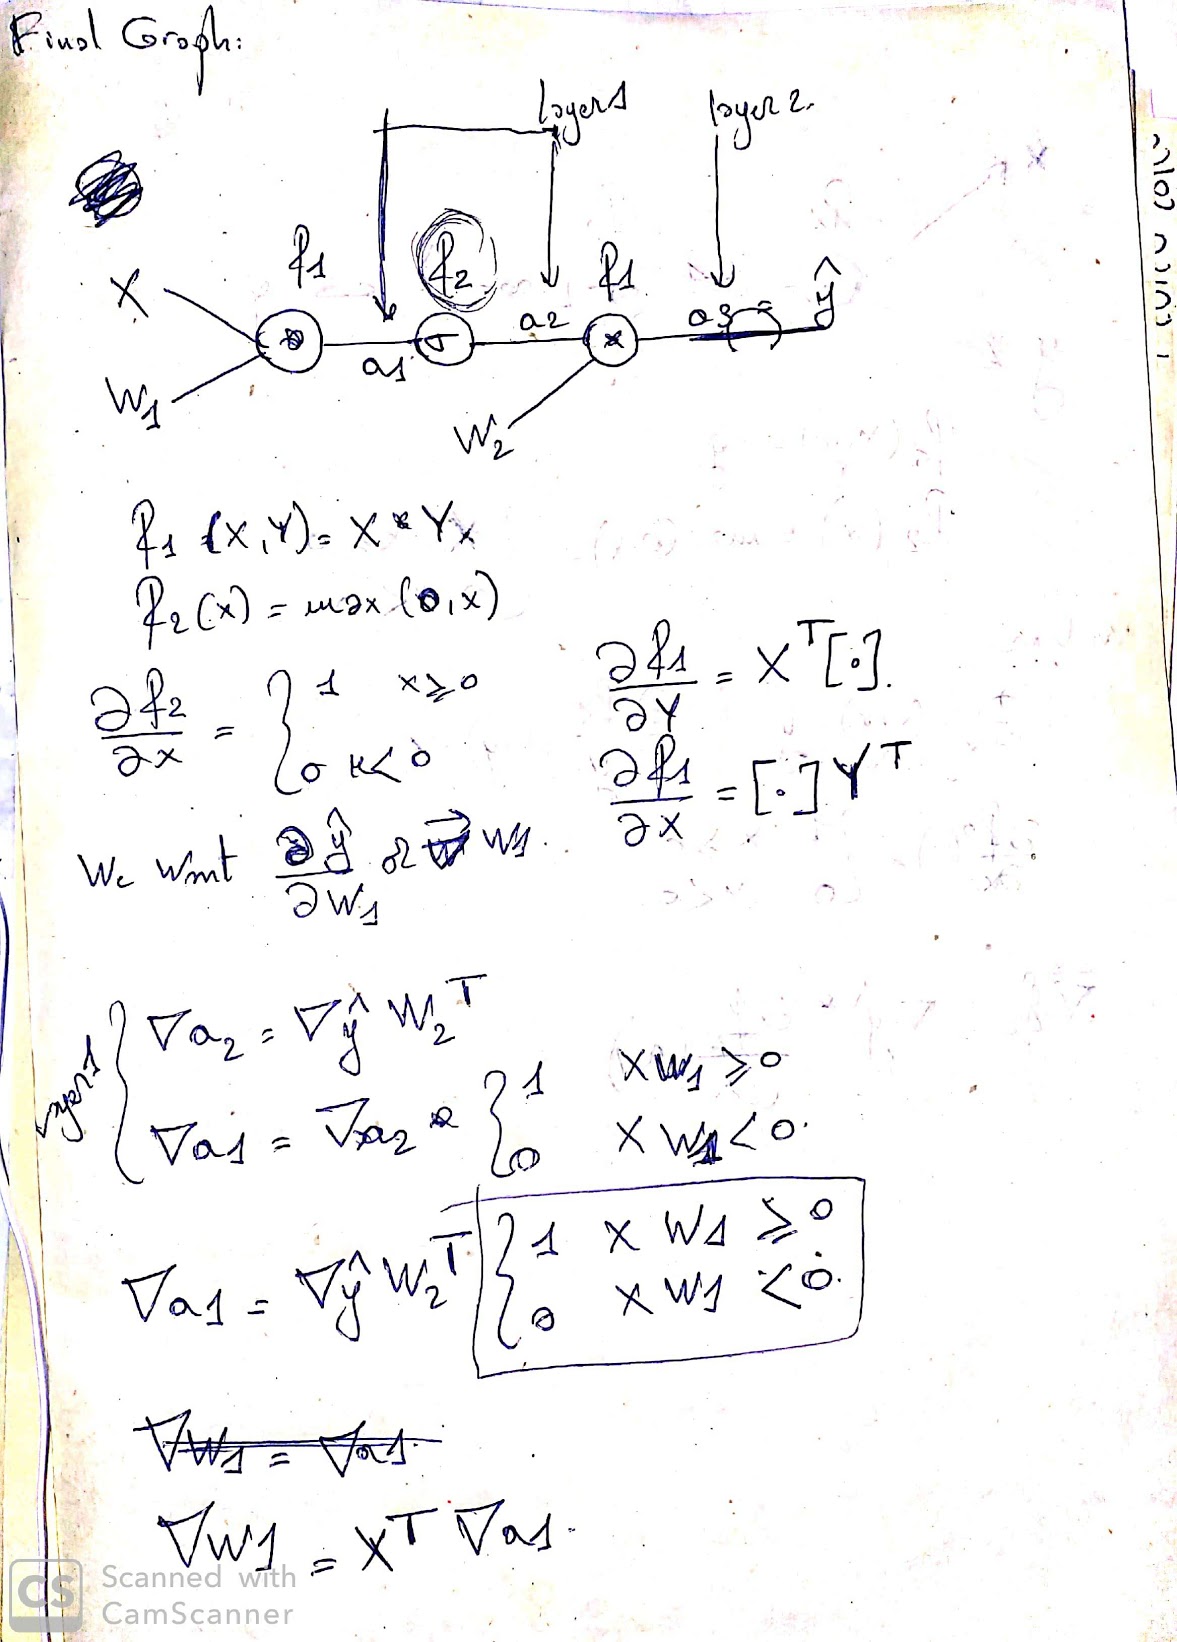 Final Graph:
layer1 layer 2.
f1 f2 f1
X a1 σ a2 * a3 = ŷ
W1
W2
f1 (X,Y) = X * Y
f2(x) = max (0,x)
∂f2/∂x = { 1 x ≥ 0
0 x < 0
∂f1/∂Y = X^T [·].
∂f1/∂X = [·] Y^T
We Want ∂ŷ/∂W1 W1.
Layer1 { ∇a2 = ∇ŷ W2^T
∇a1 = ∇a2 * { 1 X W1 ≥ 0
0 X W1 < 0.
∇a1 = ∇ŷ W2^T { 1 X W1 ≥ 0
0 X W1 < 0.
∇W1 = ∇a1.
∇W1 = X^T ∇a1.
CS Scanned with
CamScanner